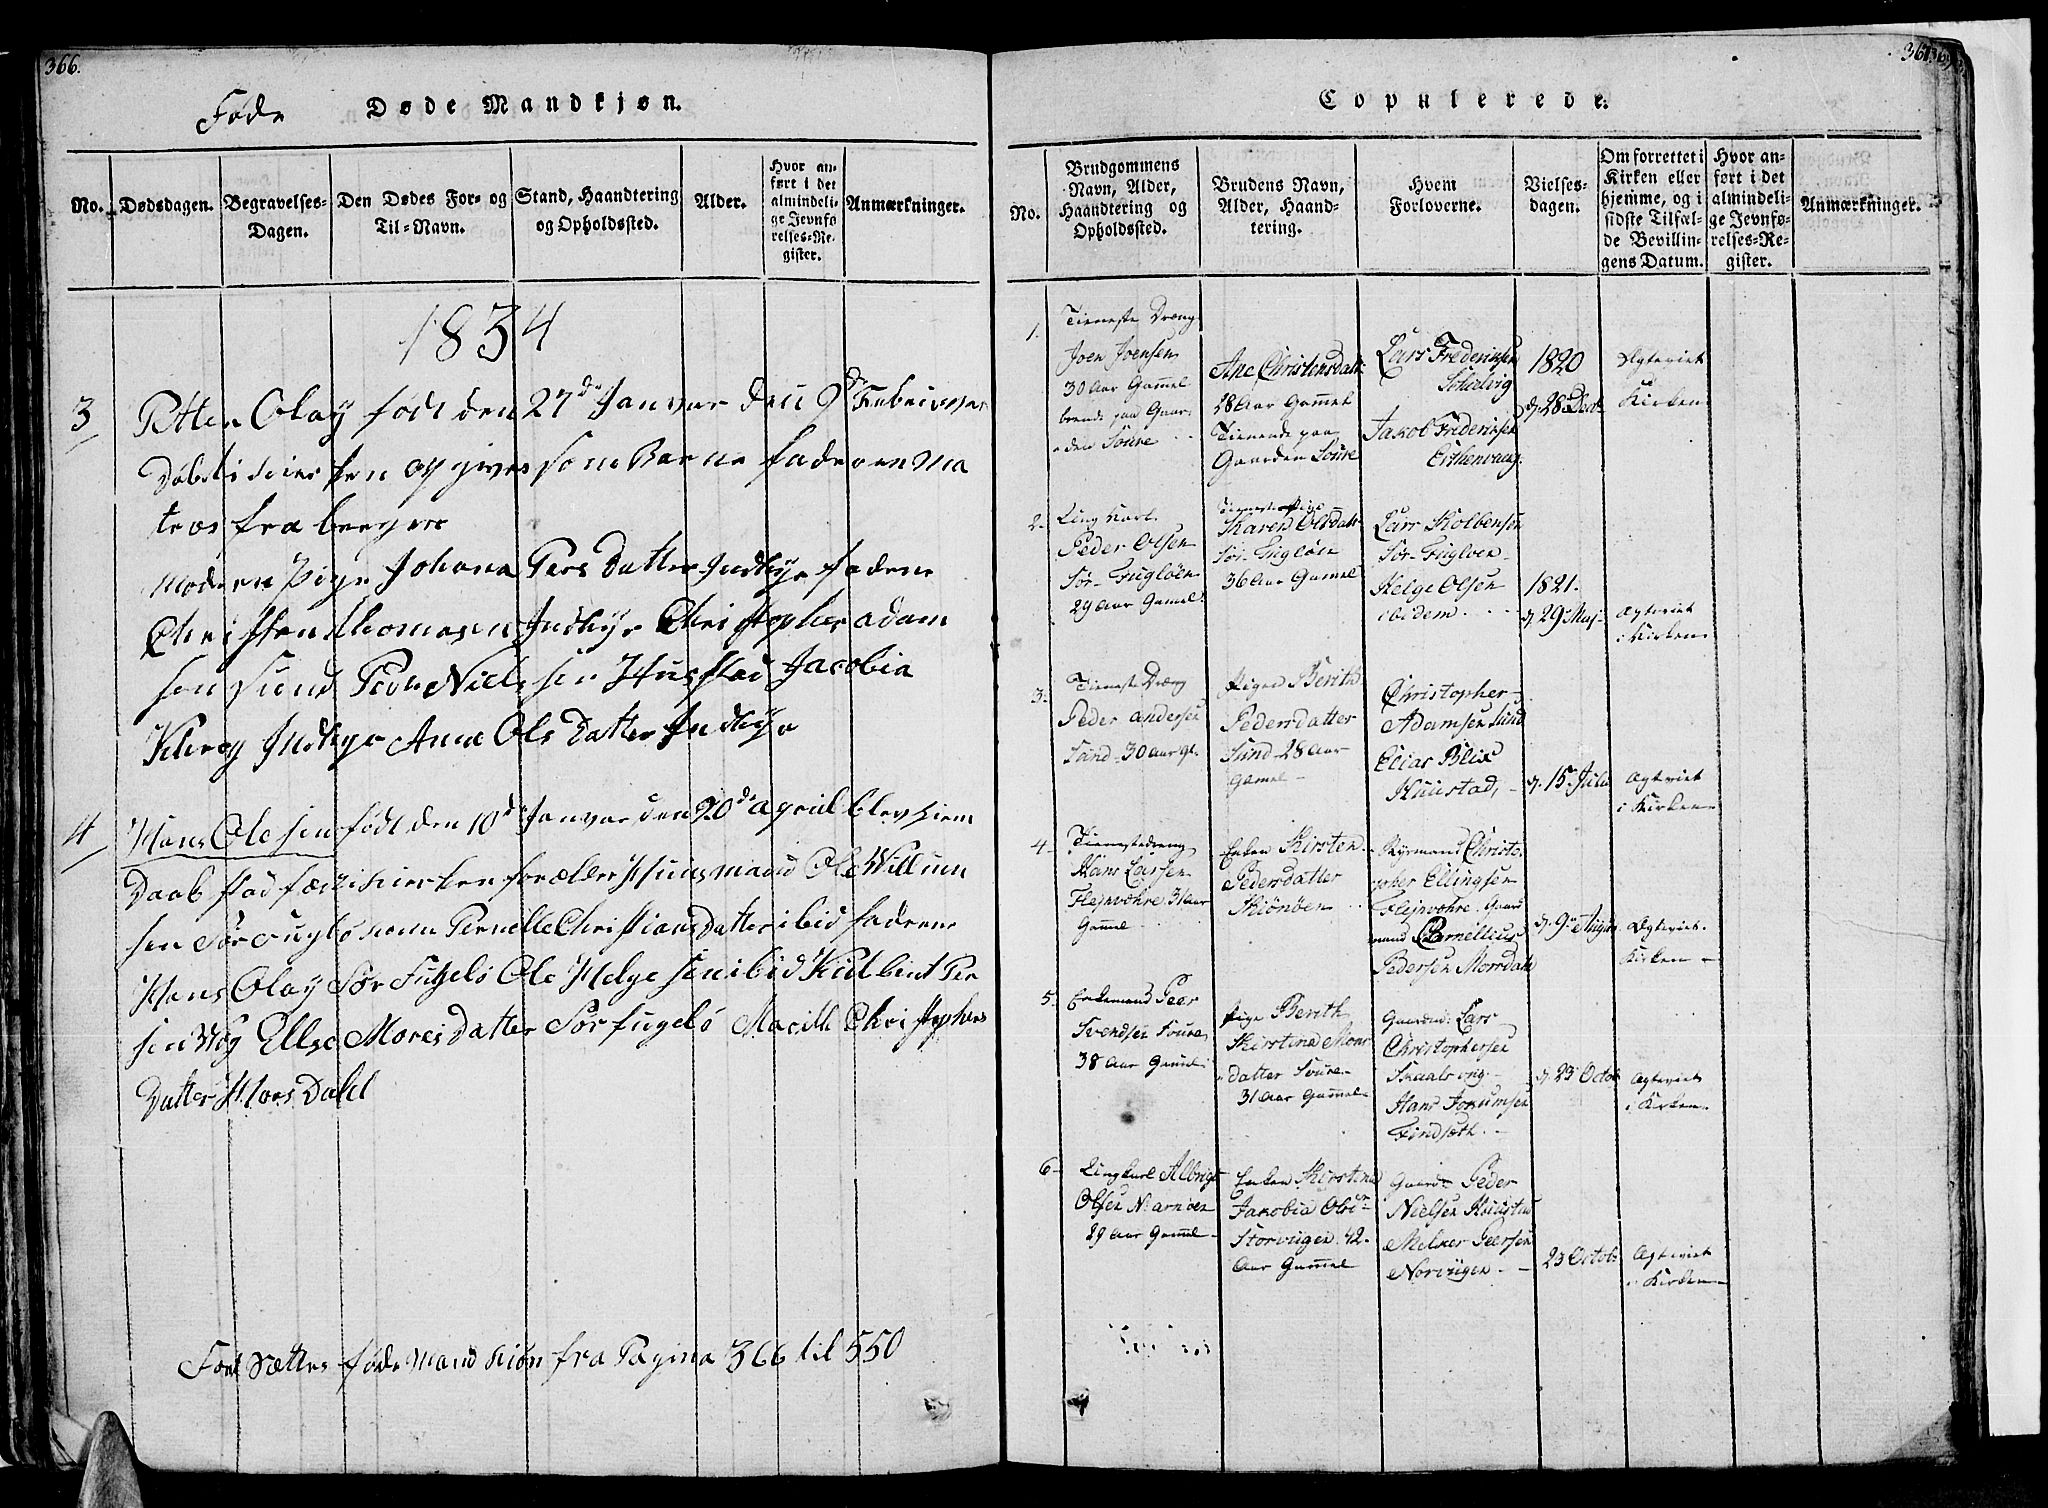 366.
Føde Døde Mandkjøn.
No.
Dødsdagen.
Begravelses-
Dagen.
Den Dødes For- og
Til-Navn.
Stand, Haandtering
og Opholdssted.
Alder.
Hvor an-
ført i det
almindeli-
ge Jevnfø-
relses-Re-
gister.
Anmærkninger.
1834
3 Petter Olay født den 27de Janvar den 9de Februar
Døbt i Kierken opgives som Barne fader en Ma
tros fra bergen
Moderen Pige Johana Pers Datter Indhye fadere
Christen Thomasen Indhye Christopher adam
sen Sund Peder Nielsen Husstad Jacobia
Indhye Ane Ols Datter Indhye
4 Hans Olesen født den 10de Janvar den 20de april blev hiem
Daab stad fæst i Kierken forælder Huusmand Ole Willum
sen Sørfuglø kone Pernelle Christians Datter ibid fadrene
Hans Olay Sør Fugelø Ole Helgesen ibid
sen Ellse Moris Datter Sørfugelø Christophers
Datter Mors Dahl
Fort Sættes føde Mand Kiøn fra Pagina 366 til 550
367
Copulerede.
No.
Brudgommens
Navn, Alder,
Haandtering og
Opholdssted.
Brudens Navn,
Alder, Haand-
tering.
Hvem
Forloverne.
Vielses-
dagen.
Om forrettet i
Kirken eller
hjemme, og i
sidste Tilfæl-
de Bevillin-
gens Datum.
Hvor an-
ført i det
almindeli-
ge Jevnfø-
relses-Re-
gister.
Anmærkninger.
1.
Tieneste Dræng
Joen Joensen
30 Aar Gammel
boende paa Gaar-
den Soure
Ane Christensdatt:
28 Aar Gammel
Tienende paa
Gaarden Soure
Lars Fredericksen
Schielvig
Jakob Fredericksen
1820
d. 28 Dec
Ægteviet
Kirken
2.
Ung Karl
Peder Olsen
Sør-Fugløen
29 Aar Gamel.
Tieneste Pige
Karen Olsdatt.
Sør-Fugløen
36 Aar Gamel
Lars Kolbensen
Sør-Fugløen
Helge Olsen
ibidem
1821.
d. 29 Maj
Ægteviet
i Kirken
3.
Tieneste Dræng
Peder Andersen
Sund - 30 Aar gl.
Pigen Berith
Pedersdatter
Sund - 28 Aar
Gamel -
Christopher
Adamsen Sund
Elias Blix
Huustad,
d. 15 Juli
Ægteviet
i Kirken
4.
Tienestedreng
Hans Larsen
Flejnvohre 31 Aar
Gammel
Enken Kirsten
Pedersdatter
Skiønøen
Styrmand Christo-
pher Ellingsen
Flejnvohre. Gaard
mand Cornellius
Pedersen Morsdahl
d. 9 August
Ægteviet
Kirken -
5.
Enkemand Peer
Svendsen Soure
38 Aar Gamel
Pige Berith
Kirstina Mons
datter Soure
31 Aar Gammel
Gaardmd: Lars
Christophersen
Skaalsvig
Hans Jokumsen
Findsæth.
d. 23 Octob
Ægteviet
i Kirken
6
Ungkarl Albrigt
Olsen Narnøen
29 Aar Gammel
Enken Kirstina
Jakobia Olsdr
Storvigen 42
Aar Gammel
Gaardm Peder
Nielsen Huustad
Melker Peersen
Norvigen
23 Octob
Ægteviet
i Kirken